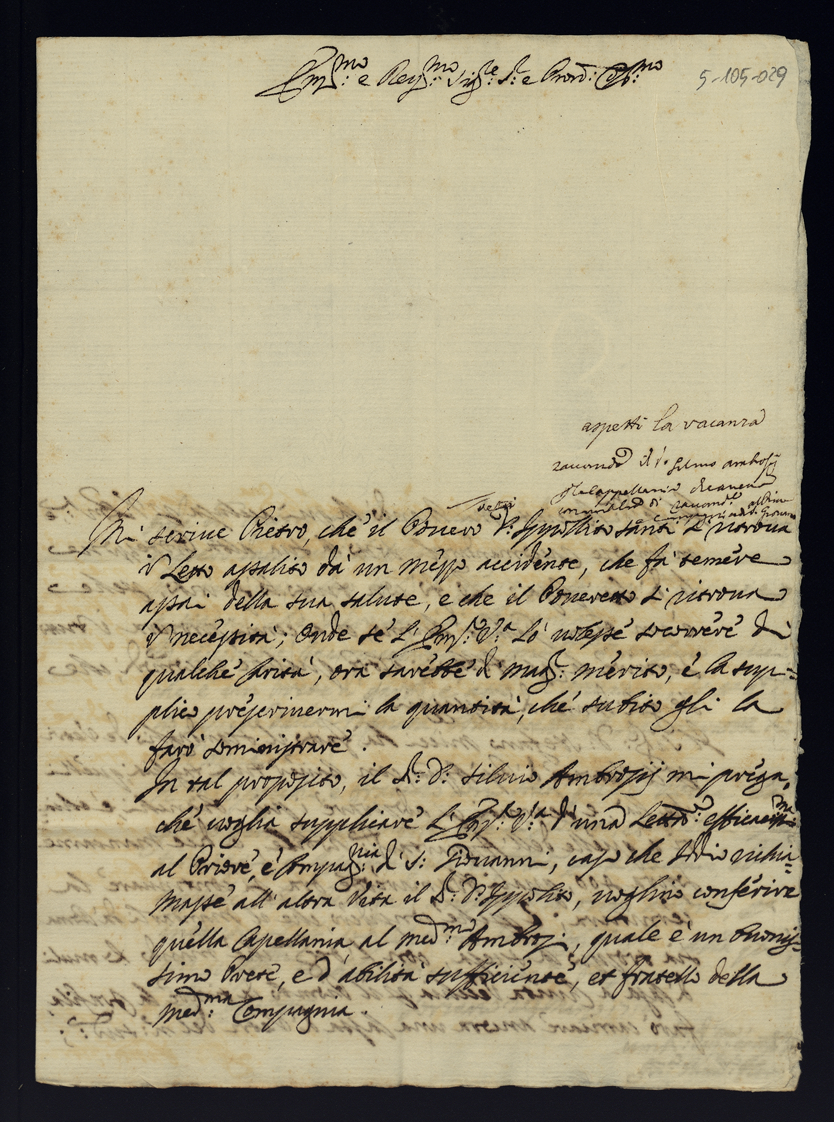 Em:mo e Rev:mo Sig:re S:r e Pron: Col:mo
5-105-029
aspetti la vacanza
raccomda il Silvio Ambrosij
p la cappellania
Mi scrive Pietro, che il Povero D: Ippolito Santi si ritrova
à Letto assalito dà un mezzo accidente, che fà temere
assai della sua salute, e che il Poveretto si ritrova
in necessità; Onde se l'Em:a V:a lo volesse soccorrere di
qualche carità, ora sarebbe di magg: merito, e la sup=
plico prescrivermi la quantità, che subito gli la
farò somministrare.
In tal proposito, il S:r D: Silvio Ambrosij mi prega,
che voglia supplicare l'Em:a V:a di una Lettera efficacissma
al Priore, e Compag:nia di S: Giovanni, caso che Iddio richia=
masse all'altra Vita il S:r D: Ippolito, voglino conferire
quella Capellania al med:mo Ambrosij, quale è un bonis=
simo Prete, e d'abilità sufficiente, et fratello della
med:ma Compagnia.